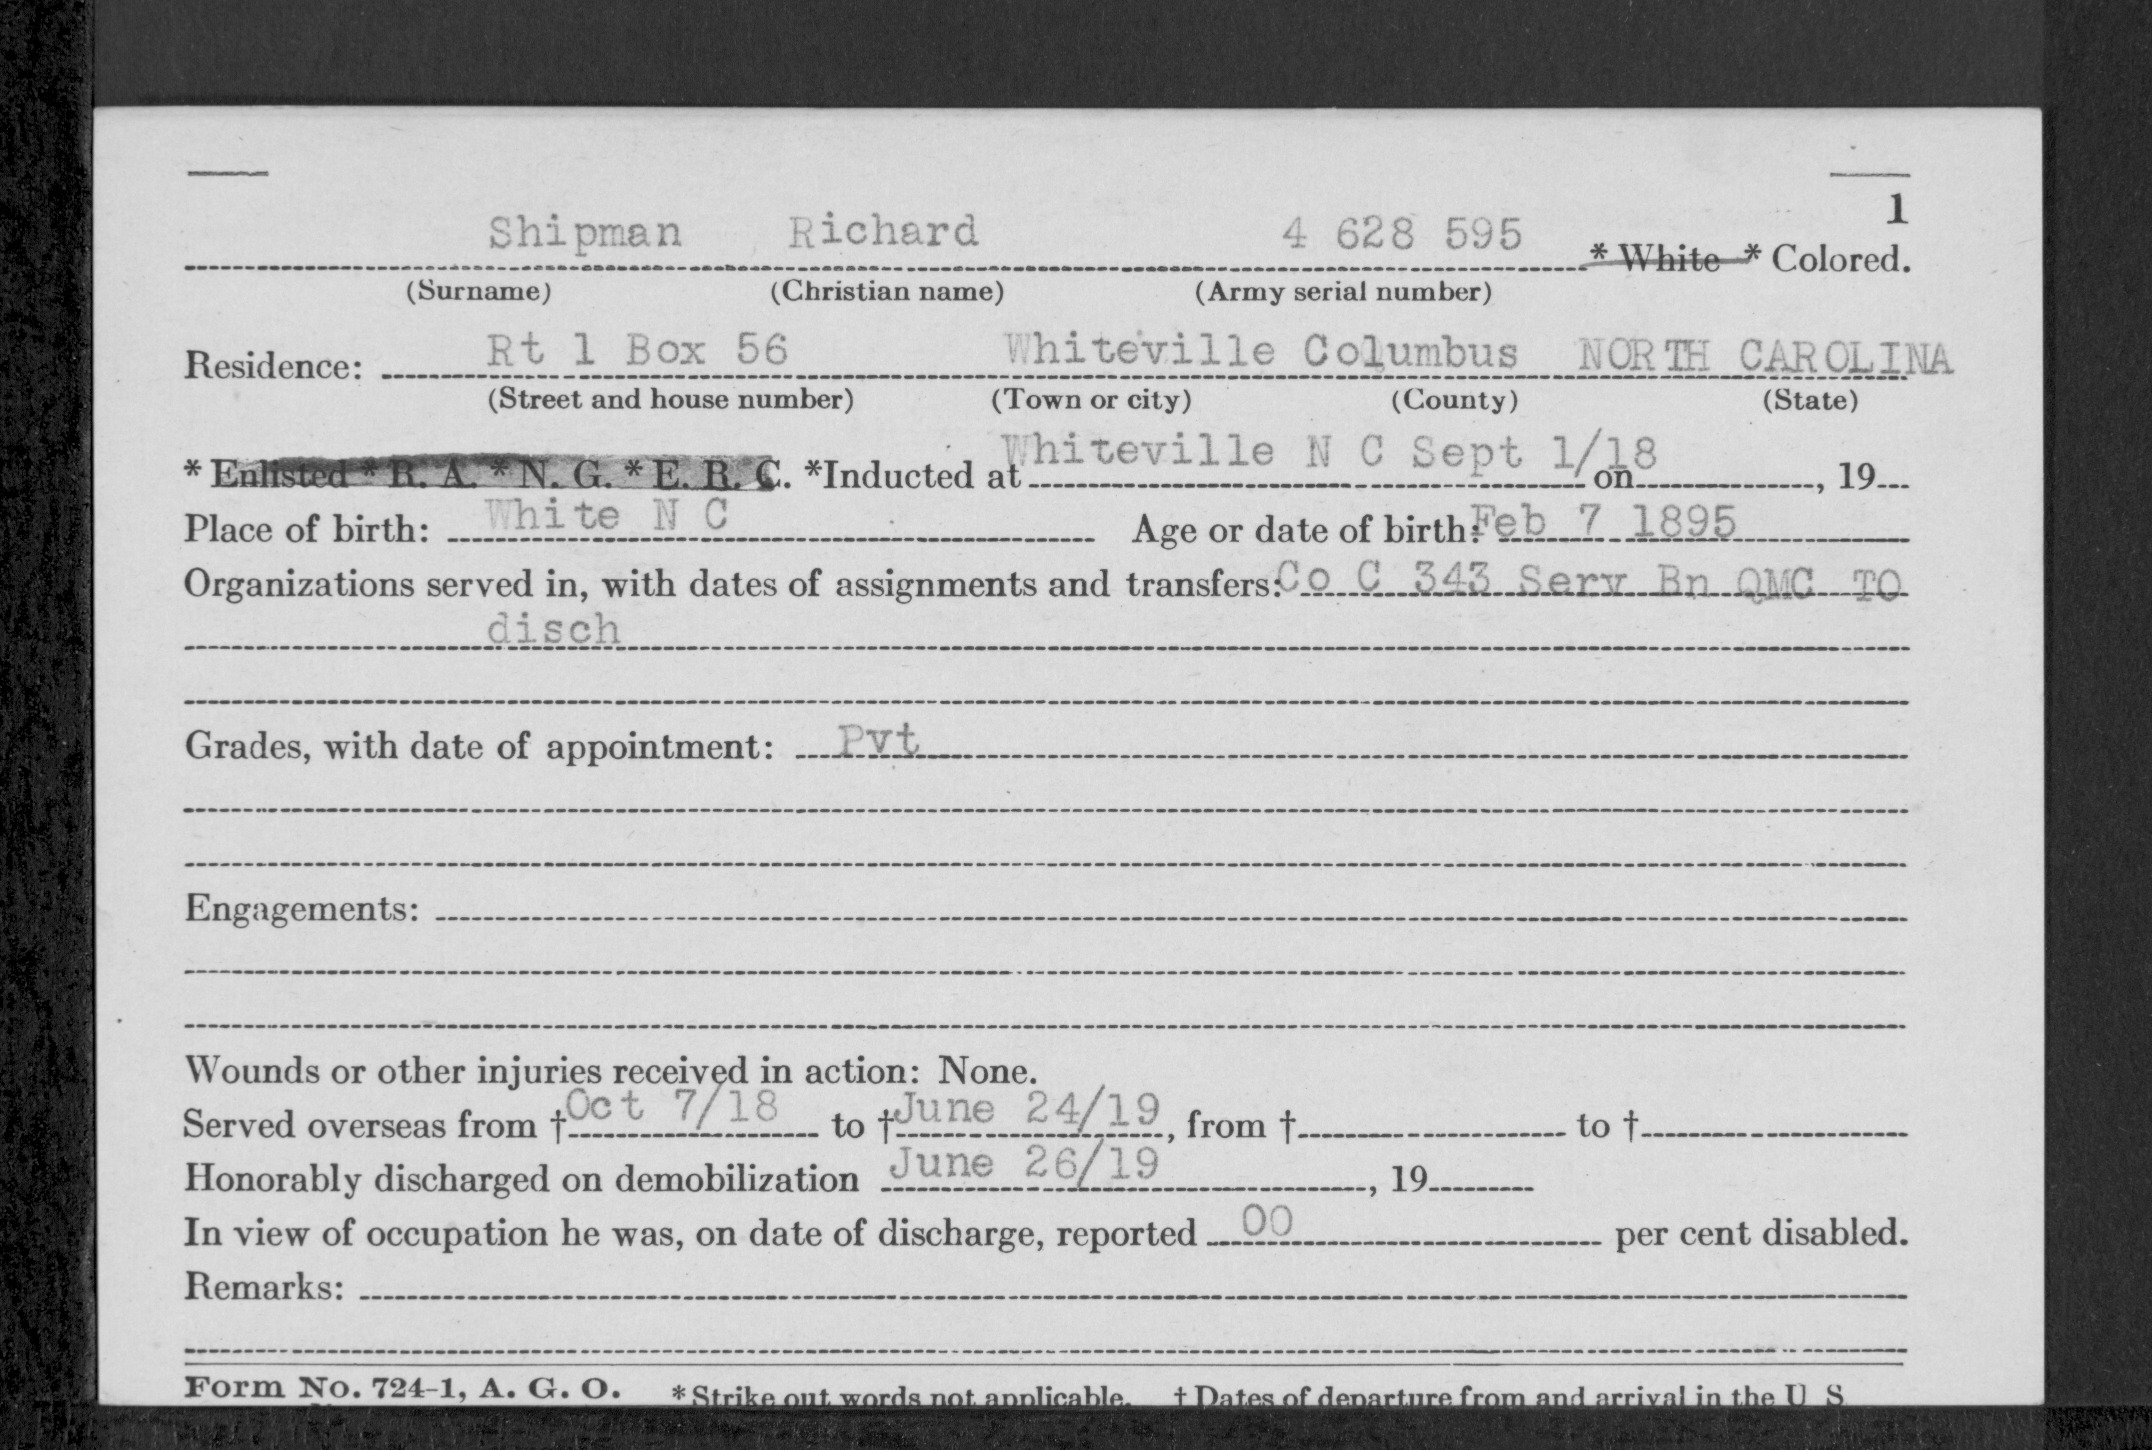 1
Shipman Richard 4 628 595 * White * Colored.
(Surname) (Christian name) (Army serial number)
Residence: Rt 1 Box 56 Whiteville Columbus NORTH CAROLINA
(Street and house number) (Town or city) (County) (State)
* Enlisted * R. A. * N. G. * E. R. C. *Inducted at Whiteville N C Sept 1/18 on , 19
Place of birth: White N C Age or date of birth: Feb 7 1895
Organizations served in, with dates of assignments and transfers: Co C 343 Serv Bn QMC TO
disch
Grades, with date of appointment: Pvt
Engagements:
Wounds or other injuries received in action: None.
Served overseas from † Oct 7/18 to † June 24/19, from † to †
Honorably discharged on demobilization June 26/19, 19
In view of occupation he was, on date of discharge, reported 00 per cent disabled.
Remarks:
Form No. 724-1, A. G. O. * Strike out words not applicable. † Dates of departure from and arrival in the U S